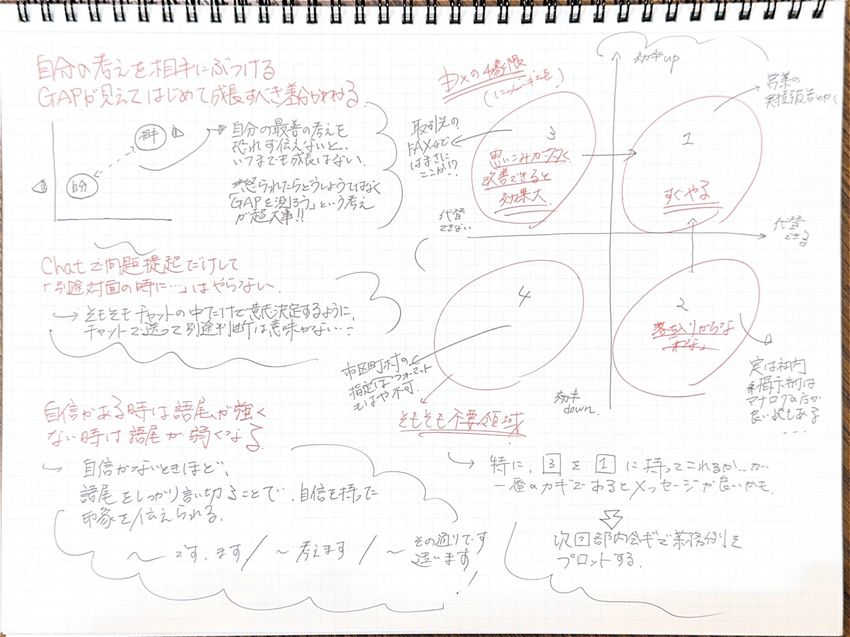 自分の考えを相手にぶつける
GAPが見えてはじめて成長すべき差分がわかる
相手
自分
自分の最善の考えを
恐れず伝えないと、
いつまでも成長はない。
怒られたらどうしようではなく
「GAPを測ろう」という考え
が超大事!!
Chatで問題提起だけして
「別途対面の時に…」はやらない。
そもそもチャットの中だけで意思決定するように、
チャットで送って別途判断は意味がない…
自信がある時は語尾が強く
ない時は語尾が弱くなる
自信がないときほど、
語尾をしっかり言い切ることで、自信を持った
印象を伝えられる。
〜です、ます/〜考えます/〜その通りです
違います!
DXの4象限
効率up
営業の
取引先の
FAXなど
はまさに
ここが!?
3
思いこみがなく
改善できると
効果大
1
すぐやる
代替
できない
代替
できる
4
2
市区町村の
指定フォーマット
もはや不可.
そもそも不要領域
効率
down.
実は社内
掲示物は
アナログの方が
良い説もある
…
特に、3を1に持ってこれるか…が
一番のカギであるとメッセージが良いかも.
次回部内会ギで業務例を
プロットする.